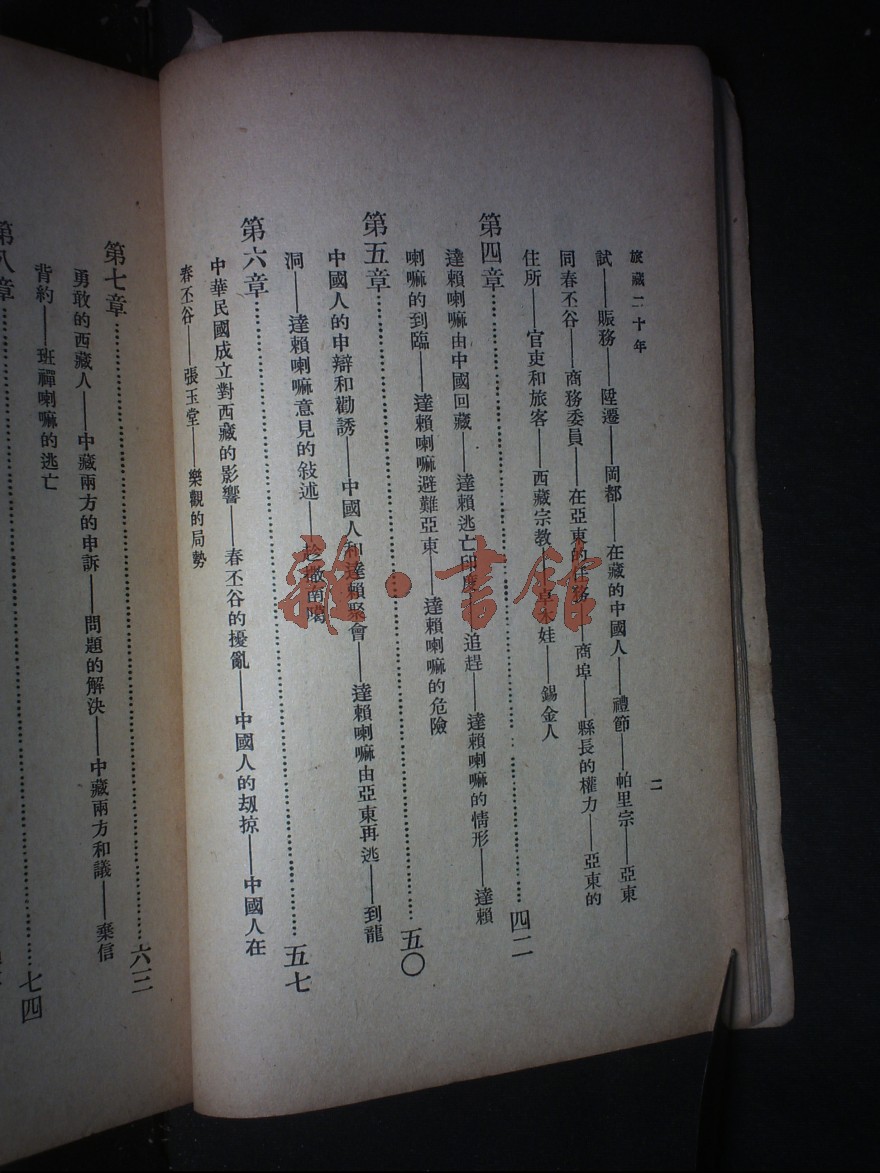 旅藏二十年
試——賬務——陞遷——岡都——在藏的中國人——禮節——帕里宗——亞東
同春丕谷——商務委員——在亞東的任務——商埠——縣長的權力——亞東的
住所——官吏和旅客——西藏宗教——娃——錫金人
二
第四章……四二
達賴喇嘛由中國回藏——達賴逃亡印度——追趕——達賴喇嘛的情形——達賴
喇嘛的到臨——達賴喇嘛避難亞東——達賴喇嘛的危險
第五章……五〇
中國人的申辯和勸誘——中國人和達賴聚會——達賴喇嘛由亞東再逃——到龍
洞——達賴喇嘛意見的敍述——南
第六章……五七
中華民國成立對西藏的影響——春丕谷的擾亂——中國人的刼掠——中國人在
春丕谷——張玉堂——樂觀的局勢
第七章……六三
勇敢的西藏人——中藏兩方的申訴——問題的解決——中藏兩方和議——棄信
背約——班禪喇嘛的逃亡
第八章……七四
雜·書館